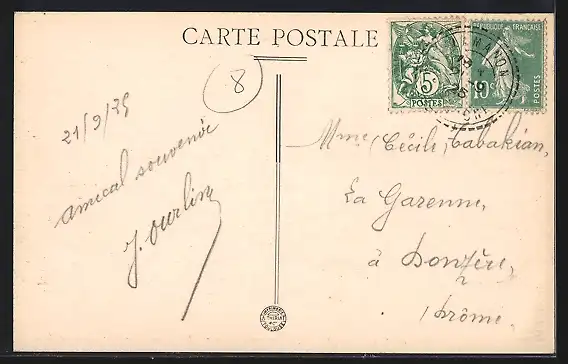 CARTE POSTALE
8
21/9/25
amical souvenir
J. Ourlin
5c
POSTES
RÉPUBLIQUE FRANÇAISE
10c
POSTES
Mme Cécile Cabakian,
La Garenne,
à Donzère,
Drôme.